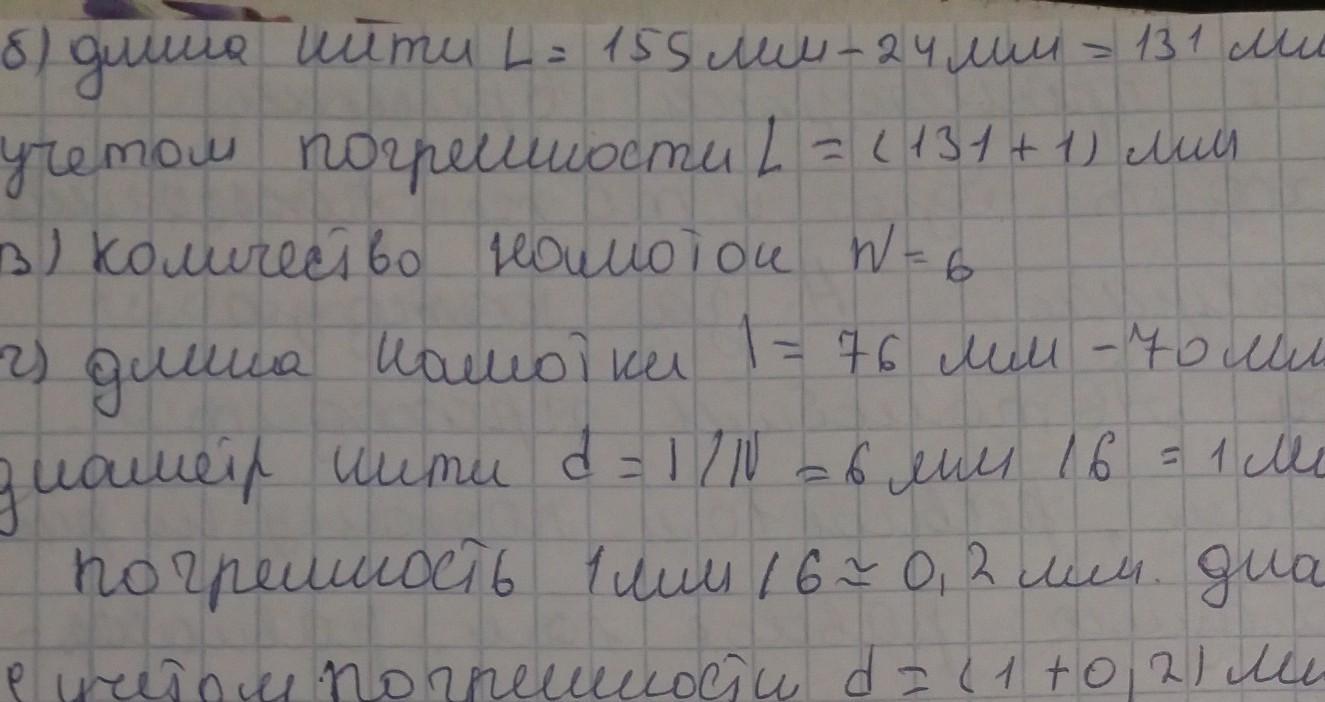 б) длина нити L = 155 мм - 24 мм = 131 мм
учетом погрешности L = (131 + 1) мм
в) количество намоток N = 6
г) длина намотки l = 76 мм - 70 мм
диаметр нити d = l / N = 6 мм / 6 = 1 м
погрешность 1 мм / 6 ≈ 0,2 мм. диа
с учетом погрешности d = (1 + 0,2) мм